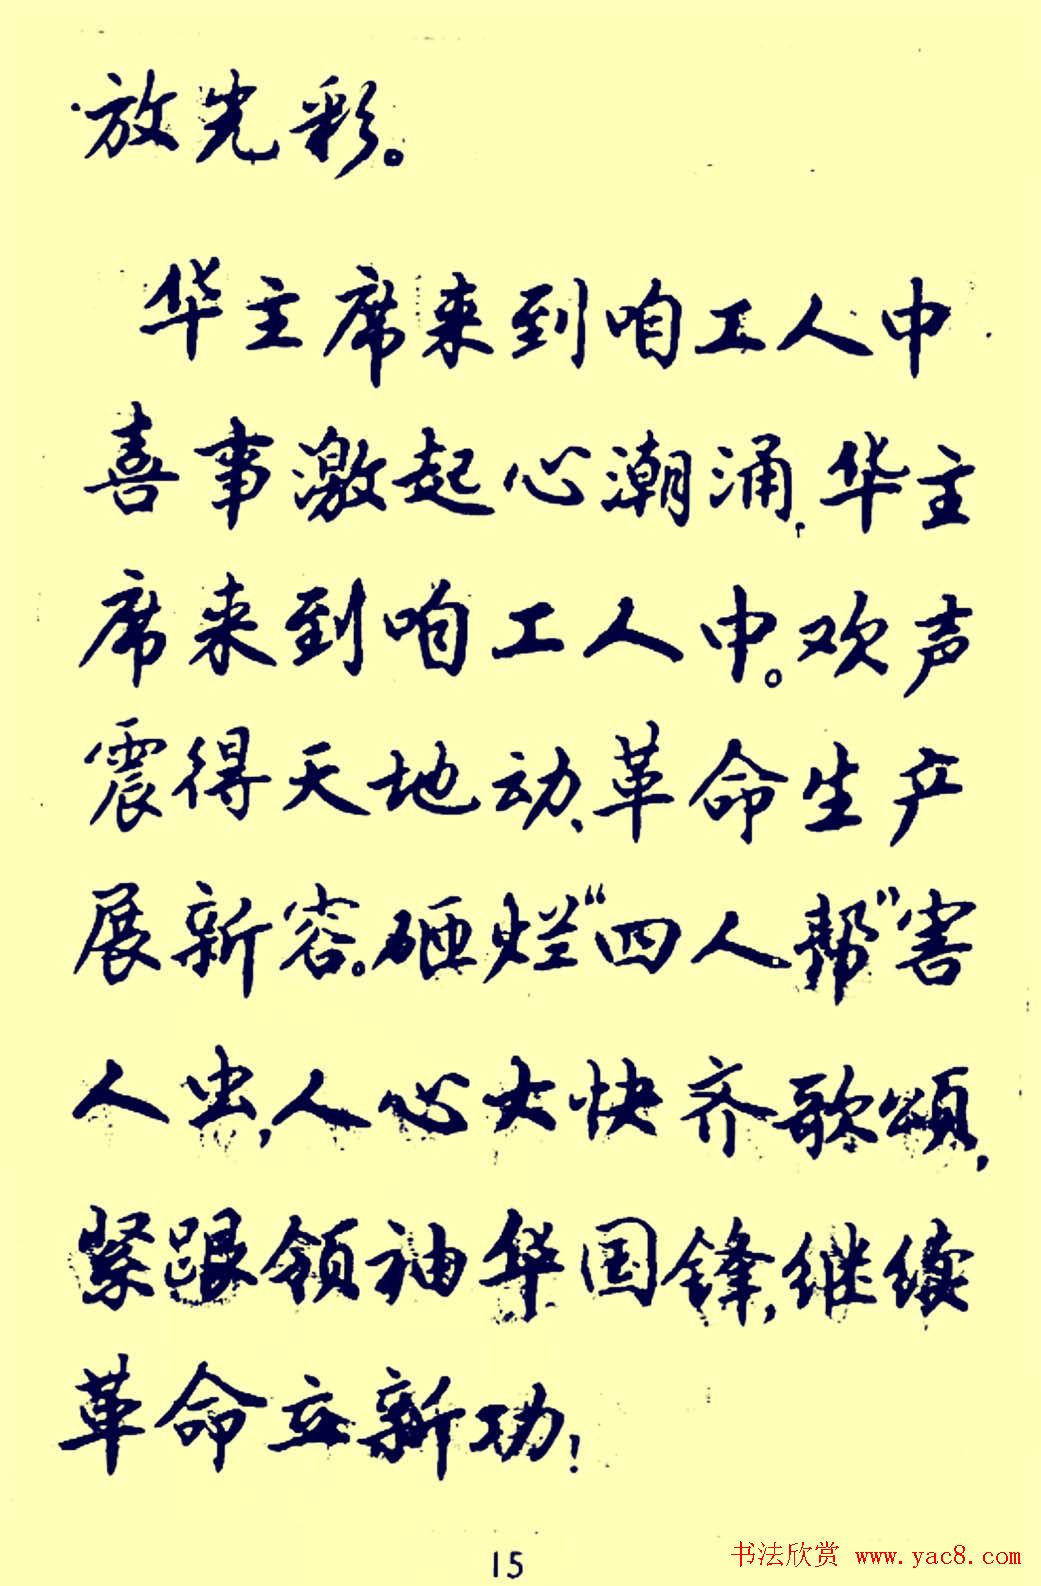 放光彩。
华主席来到咱工人中
喜事激起心潮涌，华主
席来到咱工人中。欢声
震得天地动、革命生产
展新容。砸烂“四人帮”害
人虫，人心大快齐歌颂，
紧跟领袖华国锋，继续
革命立新功！
15
书法欣赏 www.yac8.com